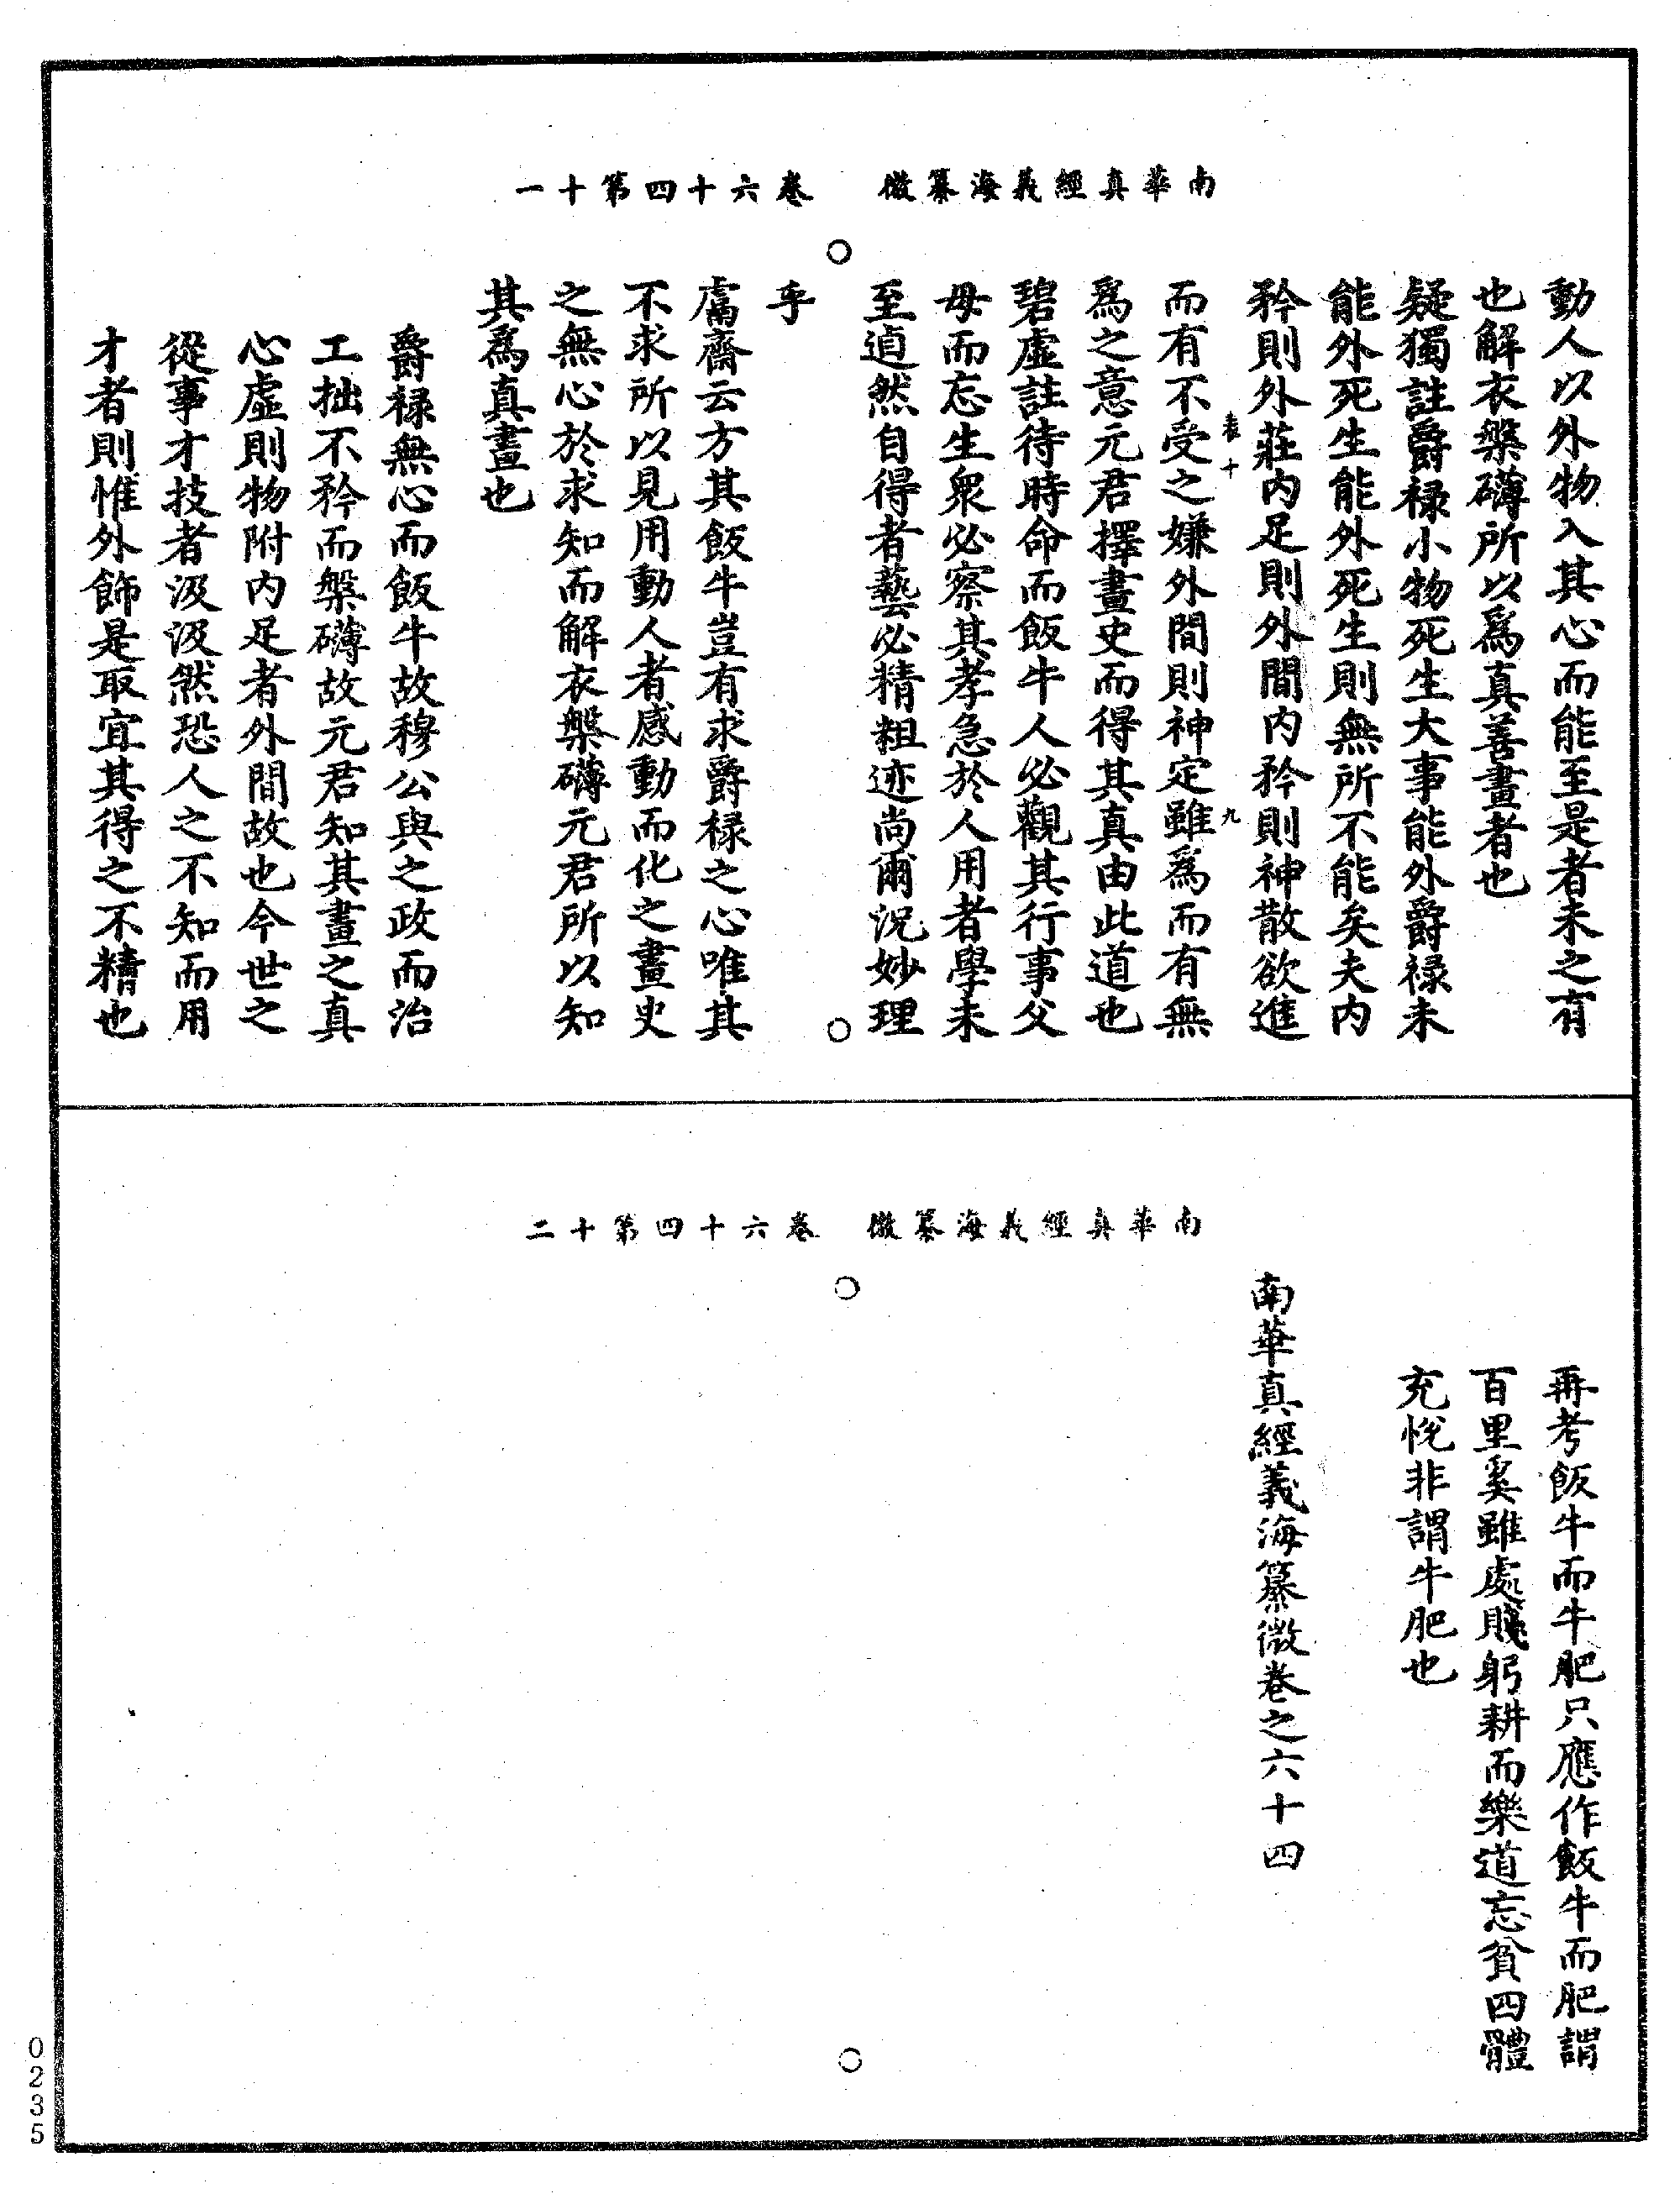 南華真經義海纂微　卷六十四第十一
動人以外物入其心而能至是者未之有
也解衣槃礴所以爲真善畫者也
疑獨註爵祿小物死生大事能外爵祿未
能外死生能外死生則無所不能矣夫内
矜則外莊内足則外閒内矜則神散欲進
表十　九
而有不受之嫌外間則神定雖爲而有無
爲之意元君擇畫史而得其真由此道也
碧虛註待時命而飯牛人必觀其行事父
母而忘生衆必察其孝急於人用者學未
至逌然自得者藝必精粗迹尚爾況妙理
乎
鬳齋云方其飯牛豈有求爵祿之心唯其
不求所以見用動人者感動而化之畫史
之無心於求知而解衣槃礴元君所以知
其爲真畫也
爵祿無心而飯牛故穆公與之政而治
工拙不矜而槃礴故元君知其畫之真
心虛則物附内足者外間故也今世之
從事才技者汲汲然恐人之不知而用
才者則惟外飾是取宜其得之不精也
南華真經義海纂微　卷六十四第十二
再考飯牛而牛肥只應作飯牛而肥謂
百里奚雖處賤躬耕而樂道忘貧四體
充悅非謂牛肥也
南華真經義海纂微卷之六十四
0235